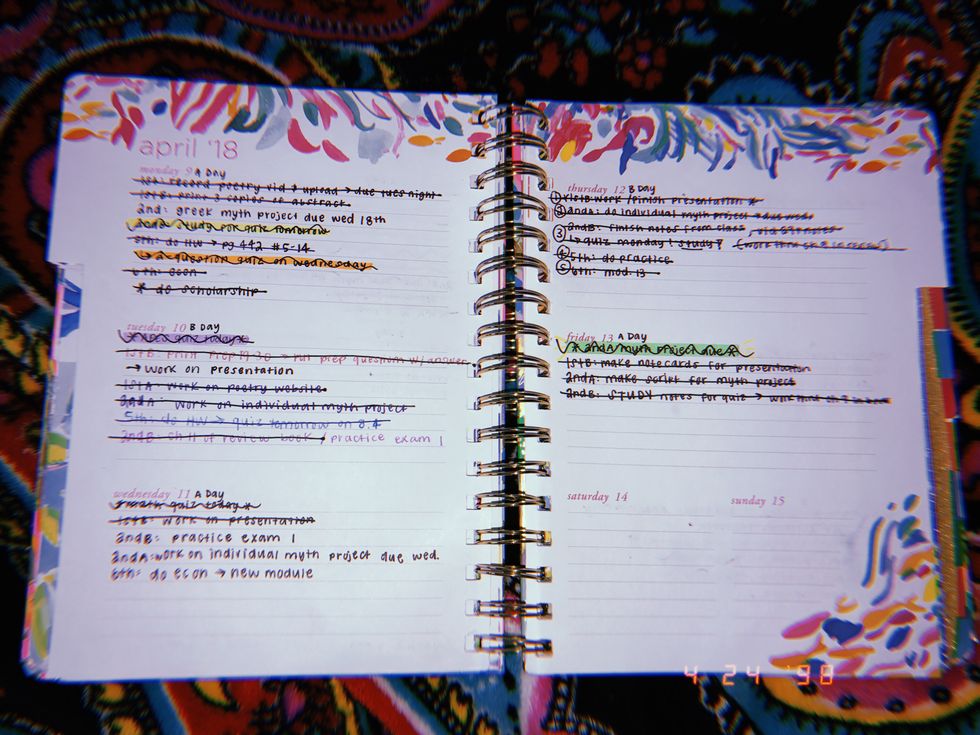 april '18
monday 9 A DAY
1stA: record poetry vid & upload → due tues night
1stB: print 3 copies of abstract
2nd: greek myth project due wed 18th
2nd: study for quiz tomorrow
5th: do HW → pg 442 #5-14
↳ 2 question quiz on wednesday
6th: econ
* do scholarship
tuesday 10 B DAY
quiz today*
1stB: print prep questions w/ answer
→ work on presentation
1stA: work on poetry website
2ndA: work on individual myth project
5th: do HW → quiz tomorrow on 8.4
2ndB: ch 11 of review book / practice exam 1
wednesday 11 A DAY
*math quiz today*
1stB: work on presentation
2ndB: practice exam 1
2ndA: work on individual myth project due wed.
6th: do econ → new module
thursday 12 B DAY
① 1stB: work / finish presentation *
② 2ndA: do individual myth project → due weds
③ 2ndB: finish notes from class, vid notes
↳ quiz monday! study? (work thru ch 9 in review)
④ 5th: do practice
⑤ 6th: mod. 13
friday 13 A DAY
* 2ndA myth project due *
1stB: make notecards for presentation
2ndA: make script for myth project
2ndB: STUDY notes for quiz → work thru ch 9 in
saturday 14
sunday 15
4 24 '98